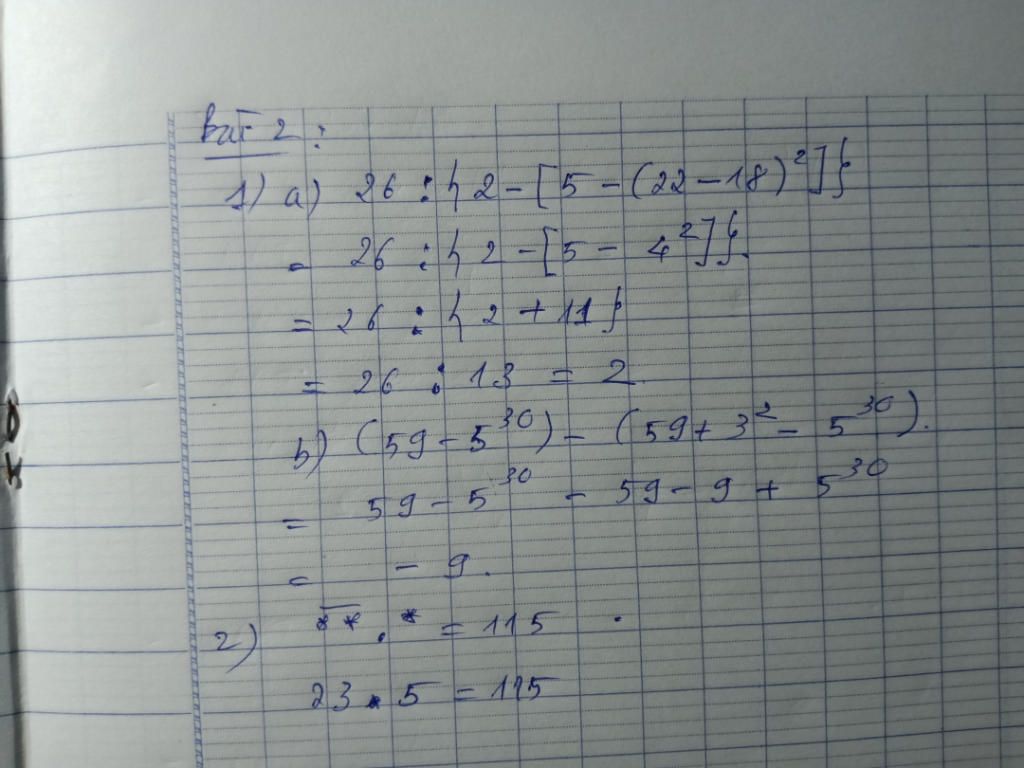 Bài 2:
1) a) 26 : { 2 - [5 - (22 - 18)²]}
= 26 : { 2 - [5 - 4²]}.
= 26 : { 2 + 11 }
= 26 : 13 = 2.
b) (59 - 5³⁰) - (59 + 3² - 5³⁰).
= 59 - 5³⁰ - 59 - 9 + 5³⁰
= - 9.
2) \overline{**} . * = 115
23 . 5 = 115